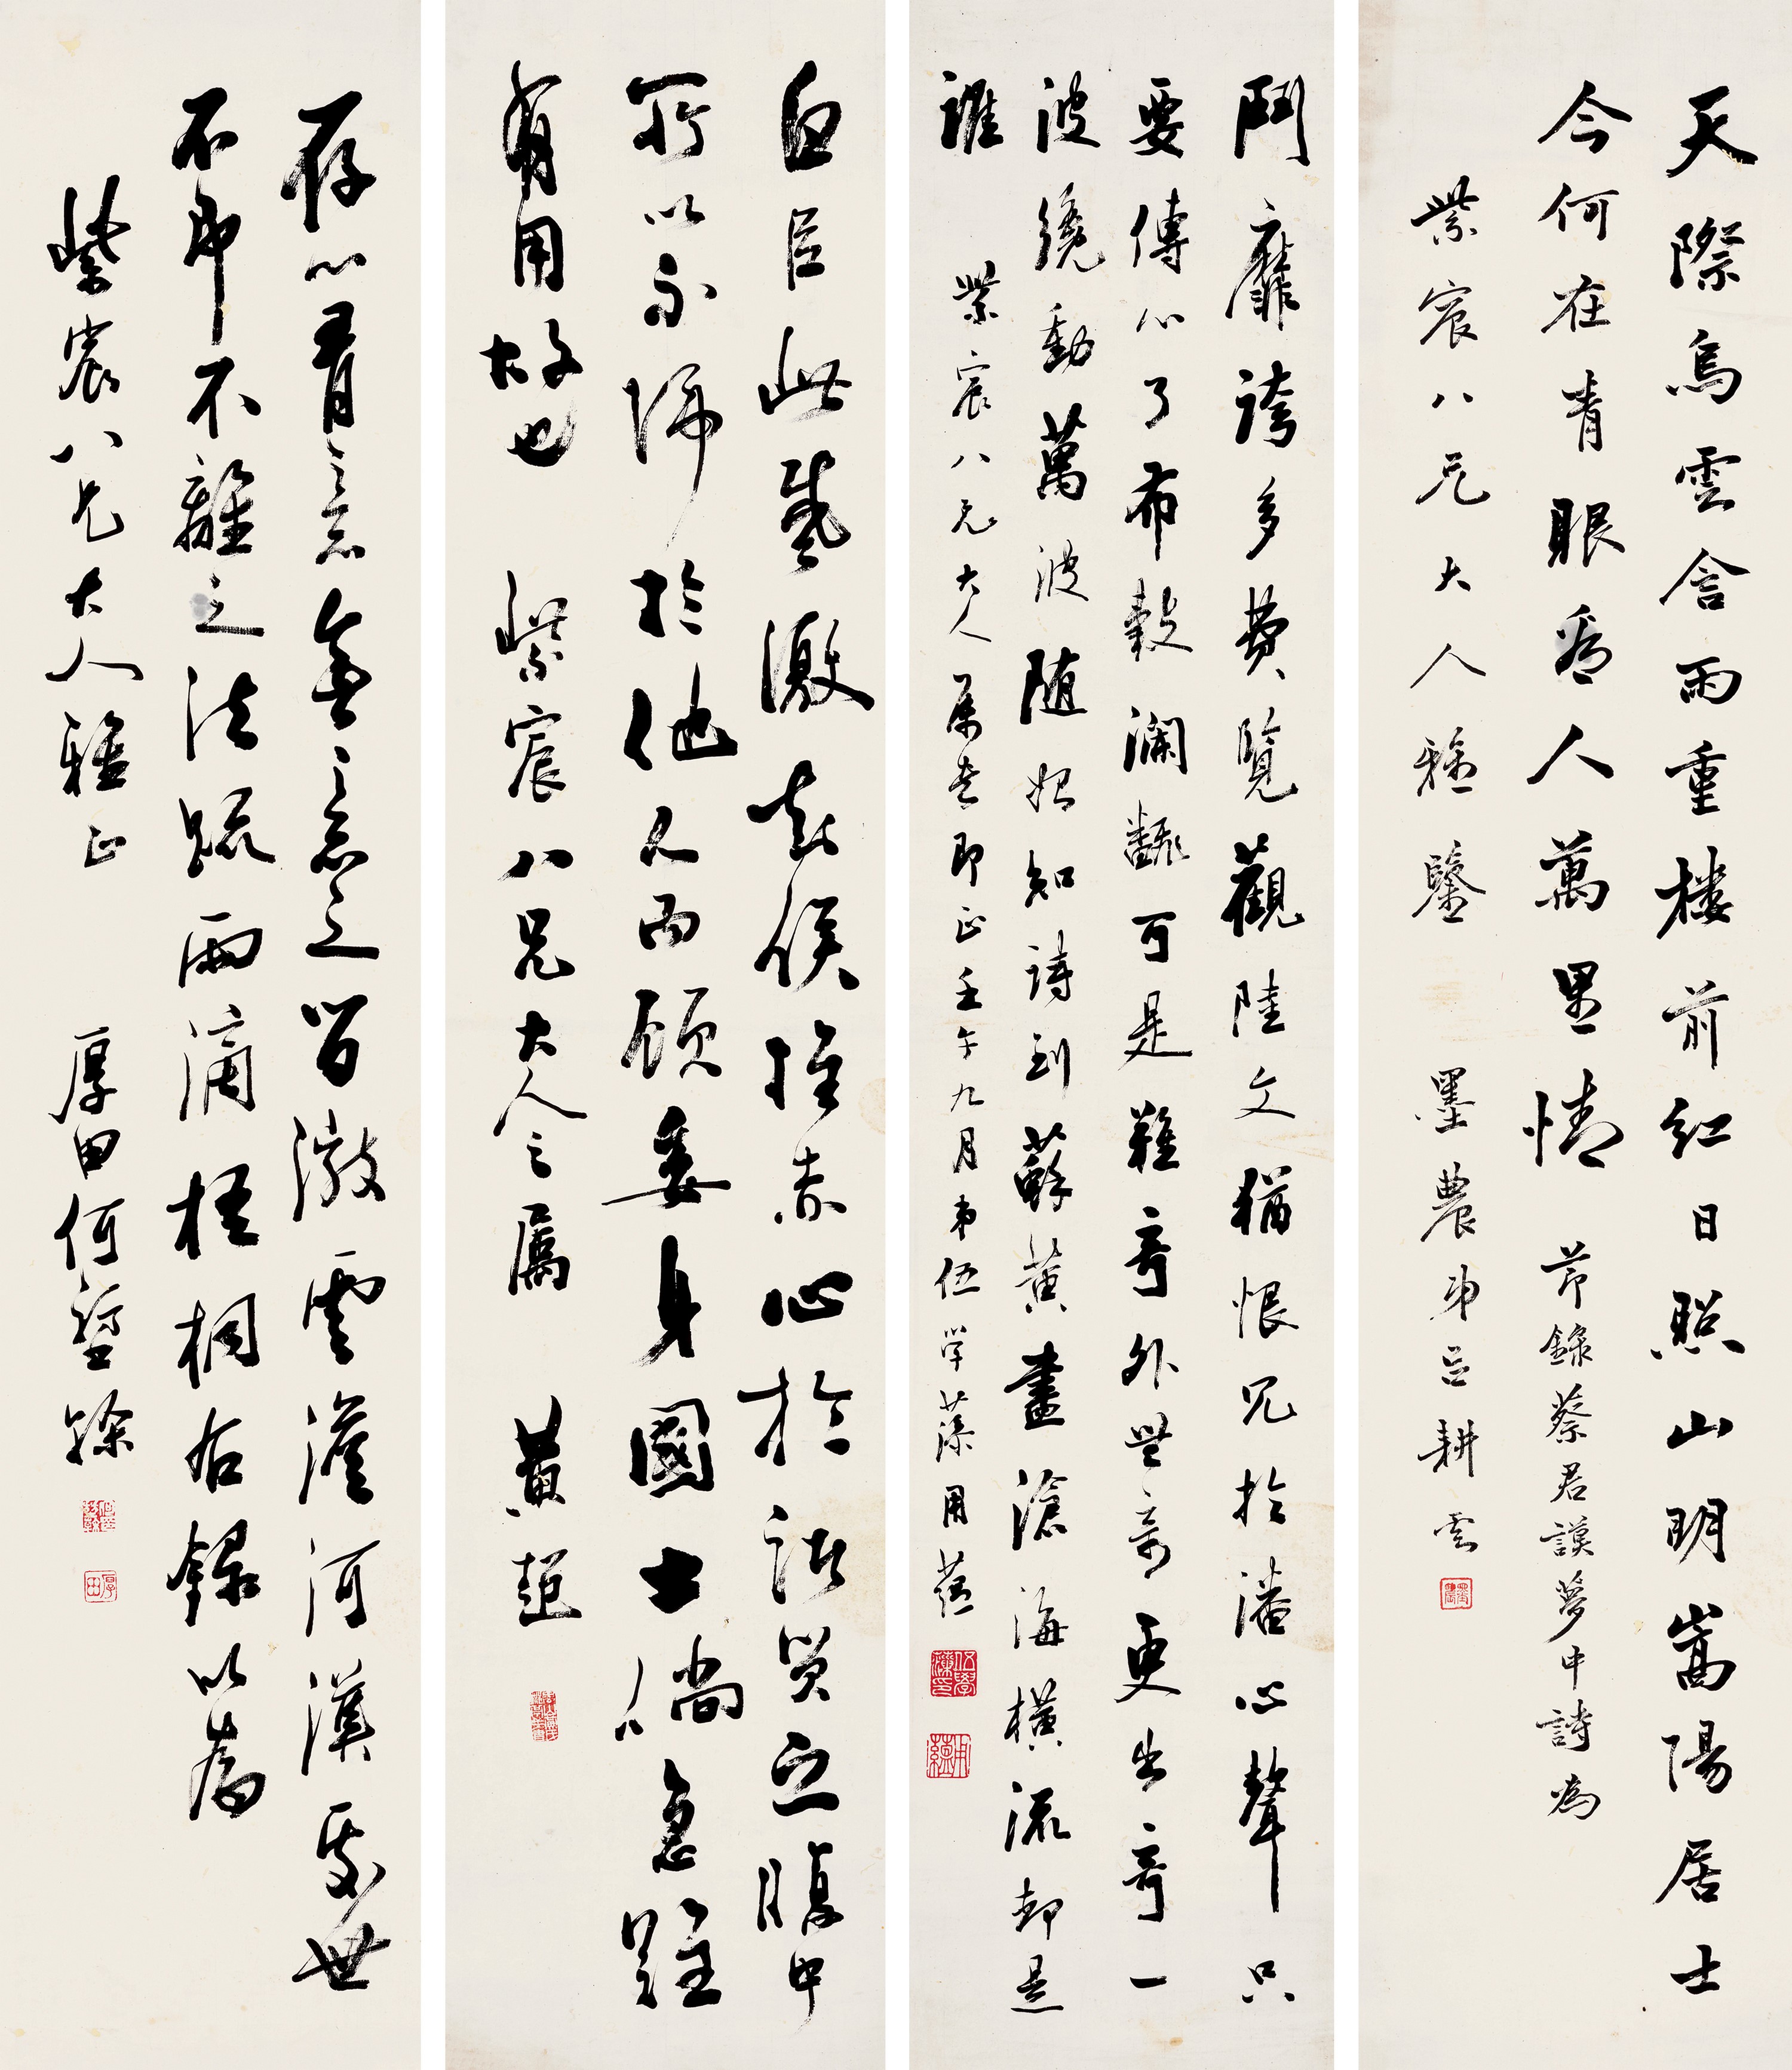 天際烏雲含雨重樓前紅日照山明嵩陽居士
今何在青眼看人萬里情 節錄蔡君謨夢中詩為
紫宸八兄大人雅鑒 墨農弟呂耕雲
墨農
鬥靡誇多費覽觀陸文猶恨冗於潘心聲只
要傳心了布穀瀾翻可是難奇外無奇更出奇一
波纔動萬波隨始知詩到蘇黃盡滄海橫流卻是
誰 紫宸八兄大人屬書即正壬午九月弟伍學藻用蘊
伍學藻印
用蘊
白㠯此感激知侯推赤心於諸賢之腹中
所以不歸於他人而願委身國士倘急難
有用故也 紫宸八兄大人之屬 黃超
存心有意無意之間微雲澹河漢處世
不即不離之法疏雨滴梧桐右錄以為
紫宸八兄大人雅正 厚田何
厚田